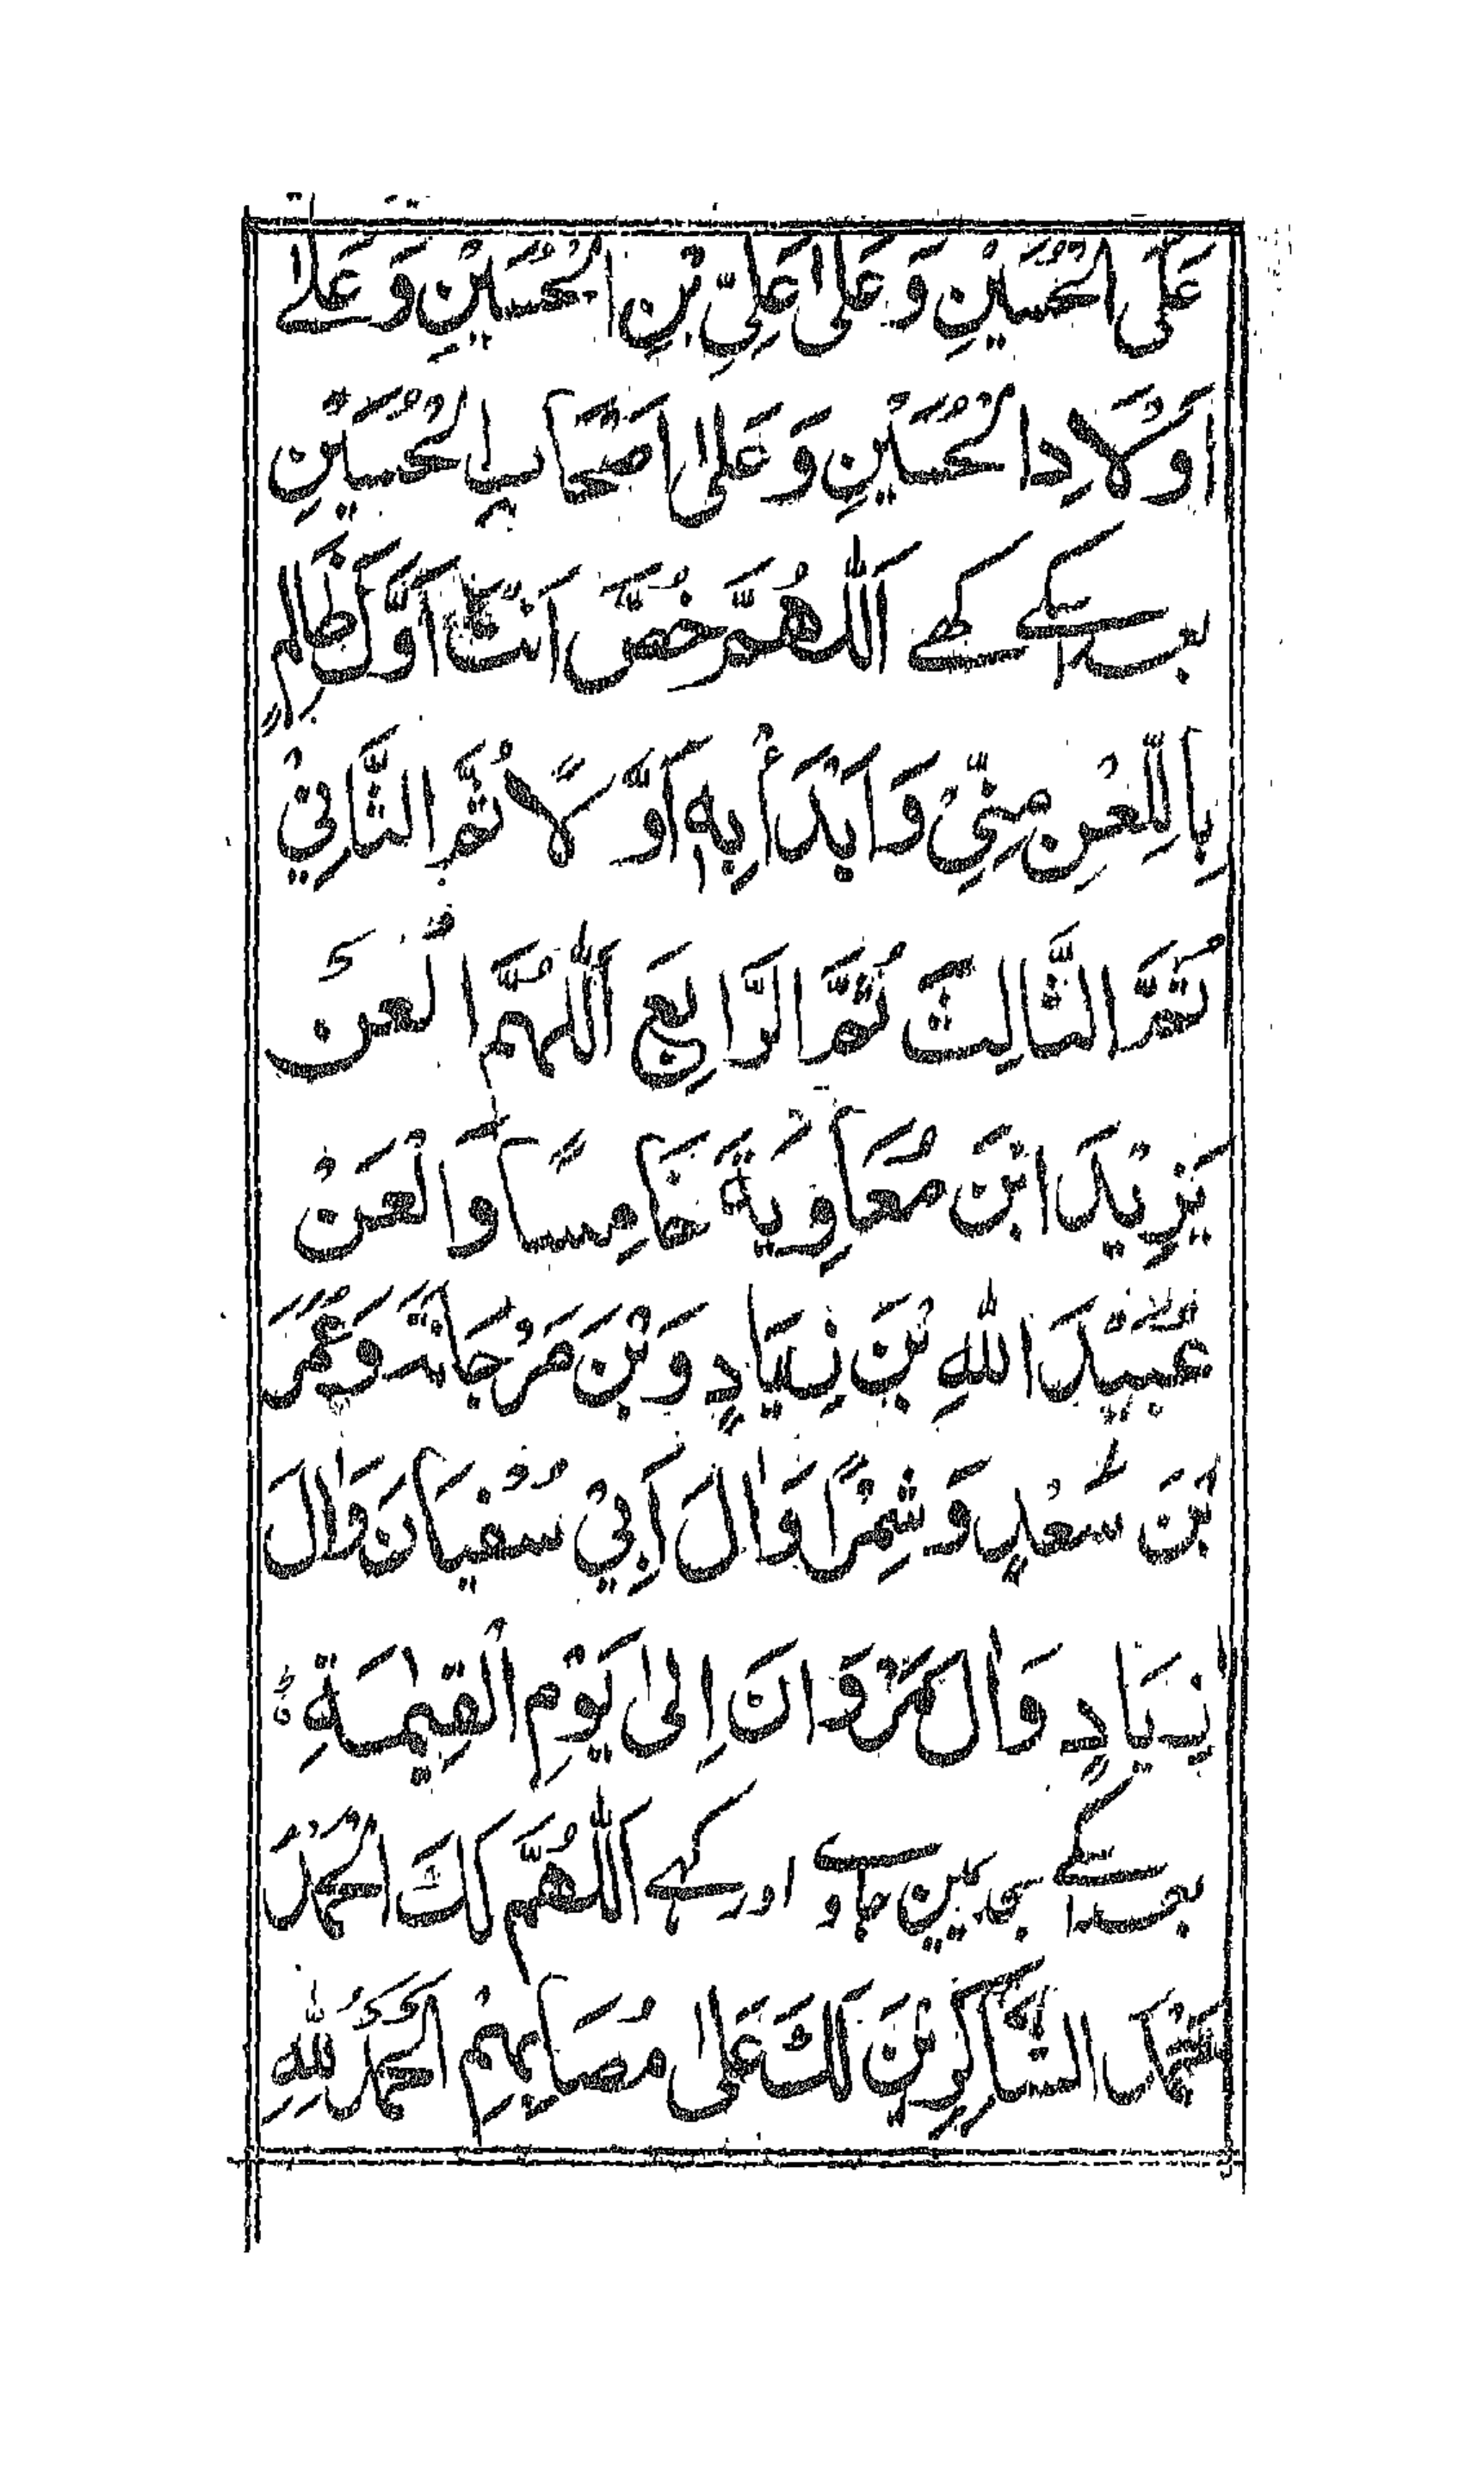 عَلَى الْحُسَيْنِ وَ عَلٰى عَلِيِّ بْنِ الْحُسَيْنِ وَ عَلٰے
اَوْلَادِ الْحُسَيْنِ وَ عَلٰى اَصْحَابِ الْحُسَيْنِ
بعد اسکے کہے اَللّٰهُمَّ خُصَّ اَنْتَ اَوَّلَ ظَالِمٍ
بِاللَّعْنِ مِنِّيْ وَ ابْدَأْ بِهٖ اَوَّلًا ثُمَّ الثَّانِيْ
ثُمَّ الثَّالِثَ ثُمَّ الرَّابِعَ اَللّٰهُمَّ الْعَنْ
يَزِيْدَ ابْنَ مُعَاوِيَةَ خَامِسًا وَ الْعَنْ
عُبَيْدَ اللهِ بْنَ زِيَادٍ وَ بْنَ مَرْجَانَةَ وَ عُمَرَ
بْنَ سَعْدٍ وَ شِمْرًا وَ اٰلَ اَبِيْ سُفْيَانَ وَ اٰلَ
زِيَادٍ وَ اٰلَ مَرْوَانَ اِلٰى يَوْمِ الْقِيٰمَةِ
بعد اسکے سجدہ مین جاوے اور کہے اَللّٰهُمَّ لَكَ الْحَمْدُ
حَمْدَ الشَّاكِرِيْنَ لَكَ عَلٰى مُصَابِهِمْ اَلْحَمْدُ لِلّٰهِ